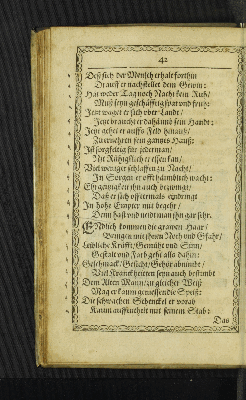 42
Daß sich der Mensch erhalt forthin
Drauff er nachstellet dem Gewin:
Hat weder Tag noch Nacht kein Ruh/
Muß seyn geschäfftig spat vnd fruh:
Jetzt waget er sich vber Landt/
Jetzt braucht er daheimb sein Handt:
Jetzt gehet er auffs Feld hinauß/
Zuernehren sein gantzes Hauß:
Ist sorgfeltig für jederman/
Mit Rühigkeit er essen kan/
Viel weniger schlaffen zu Nacht/
In Sorgen er offt hämblich wacht:
Ehrgeitzigkeit ihn auch bezwingt/
Daß er sich offtermals eindringt
In hohe Empter mit begehr/
Denn haßt vnd neidt man ihn gar sehr.
Endlich kommen die grawen Haar/
Bringen mit ihnen Noth vnd Gfahr/
Leibliche Krafft/ Gemüht vnd Sinn/
Gestalt vnd Farb geht alls dahin:
Geschmack/ Gesicht/ Gehör abnimbt/
Viel Kranckheiten seyn auch bestimbt
Dem Alten Mann/ zu gleicher Weiß
Mag er kaum geniessen die Speiß:
Die schwachen Schenckel er vorab
Kaum auffenthelt mit seinem Stab:
Das